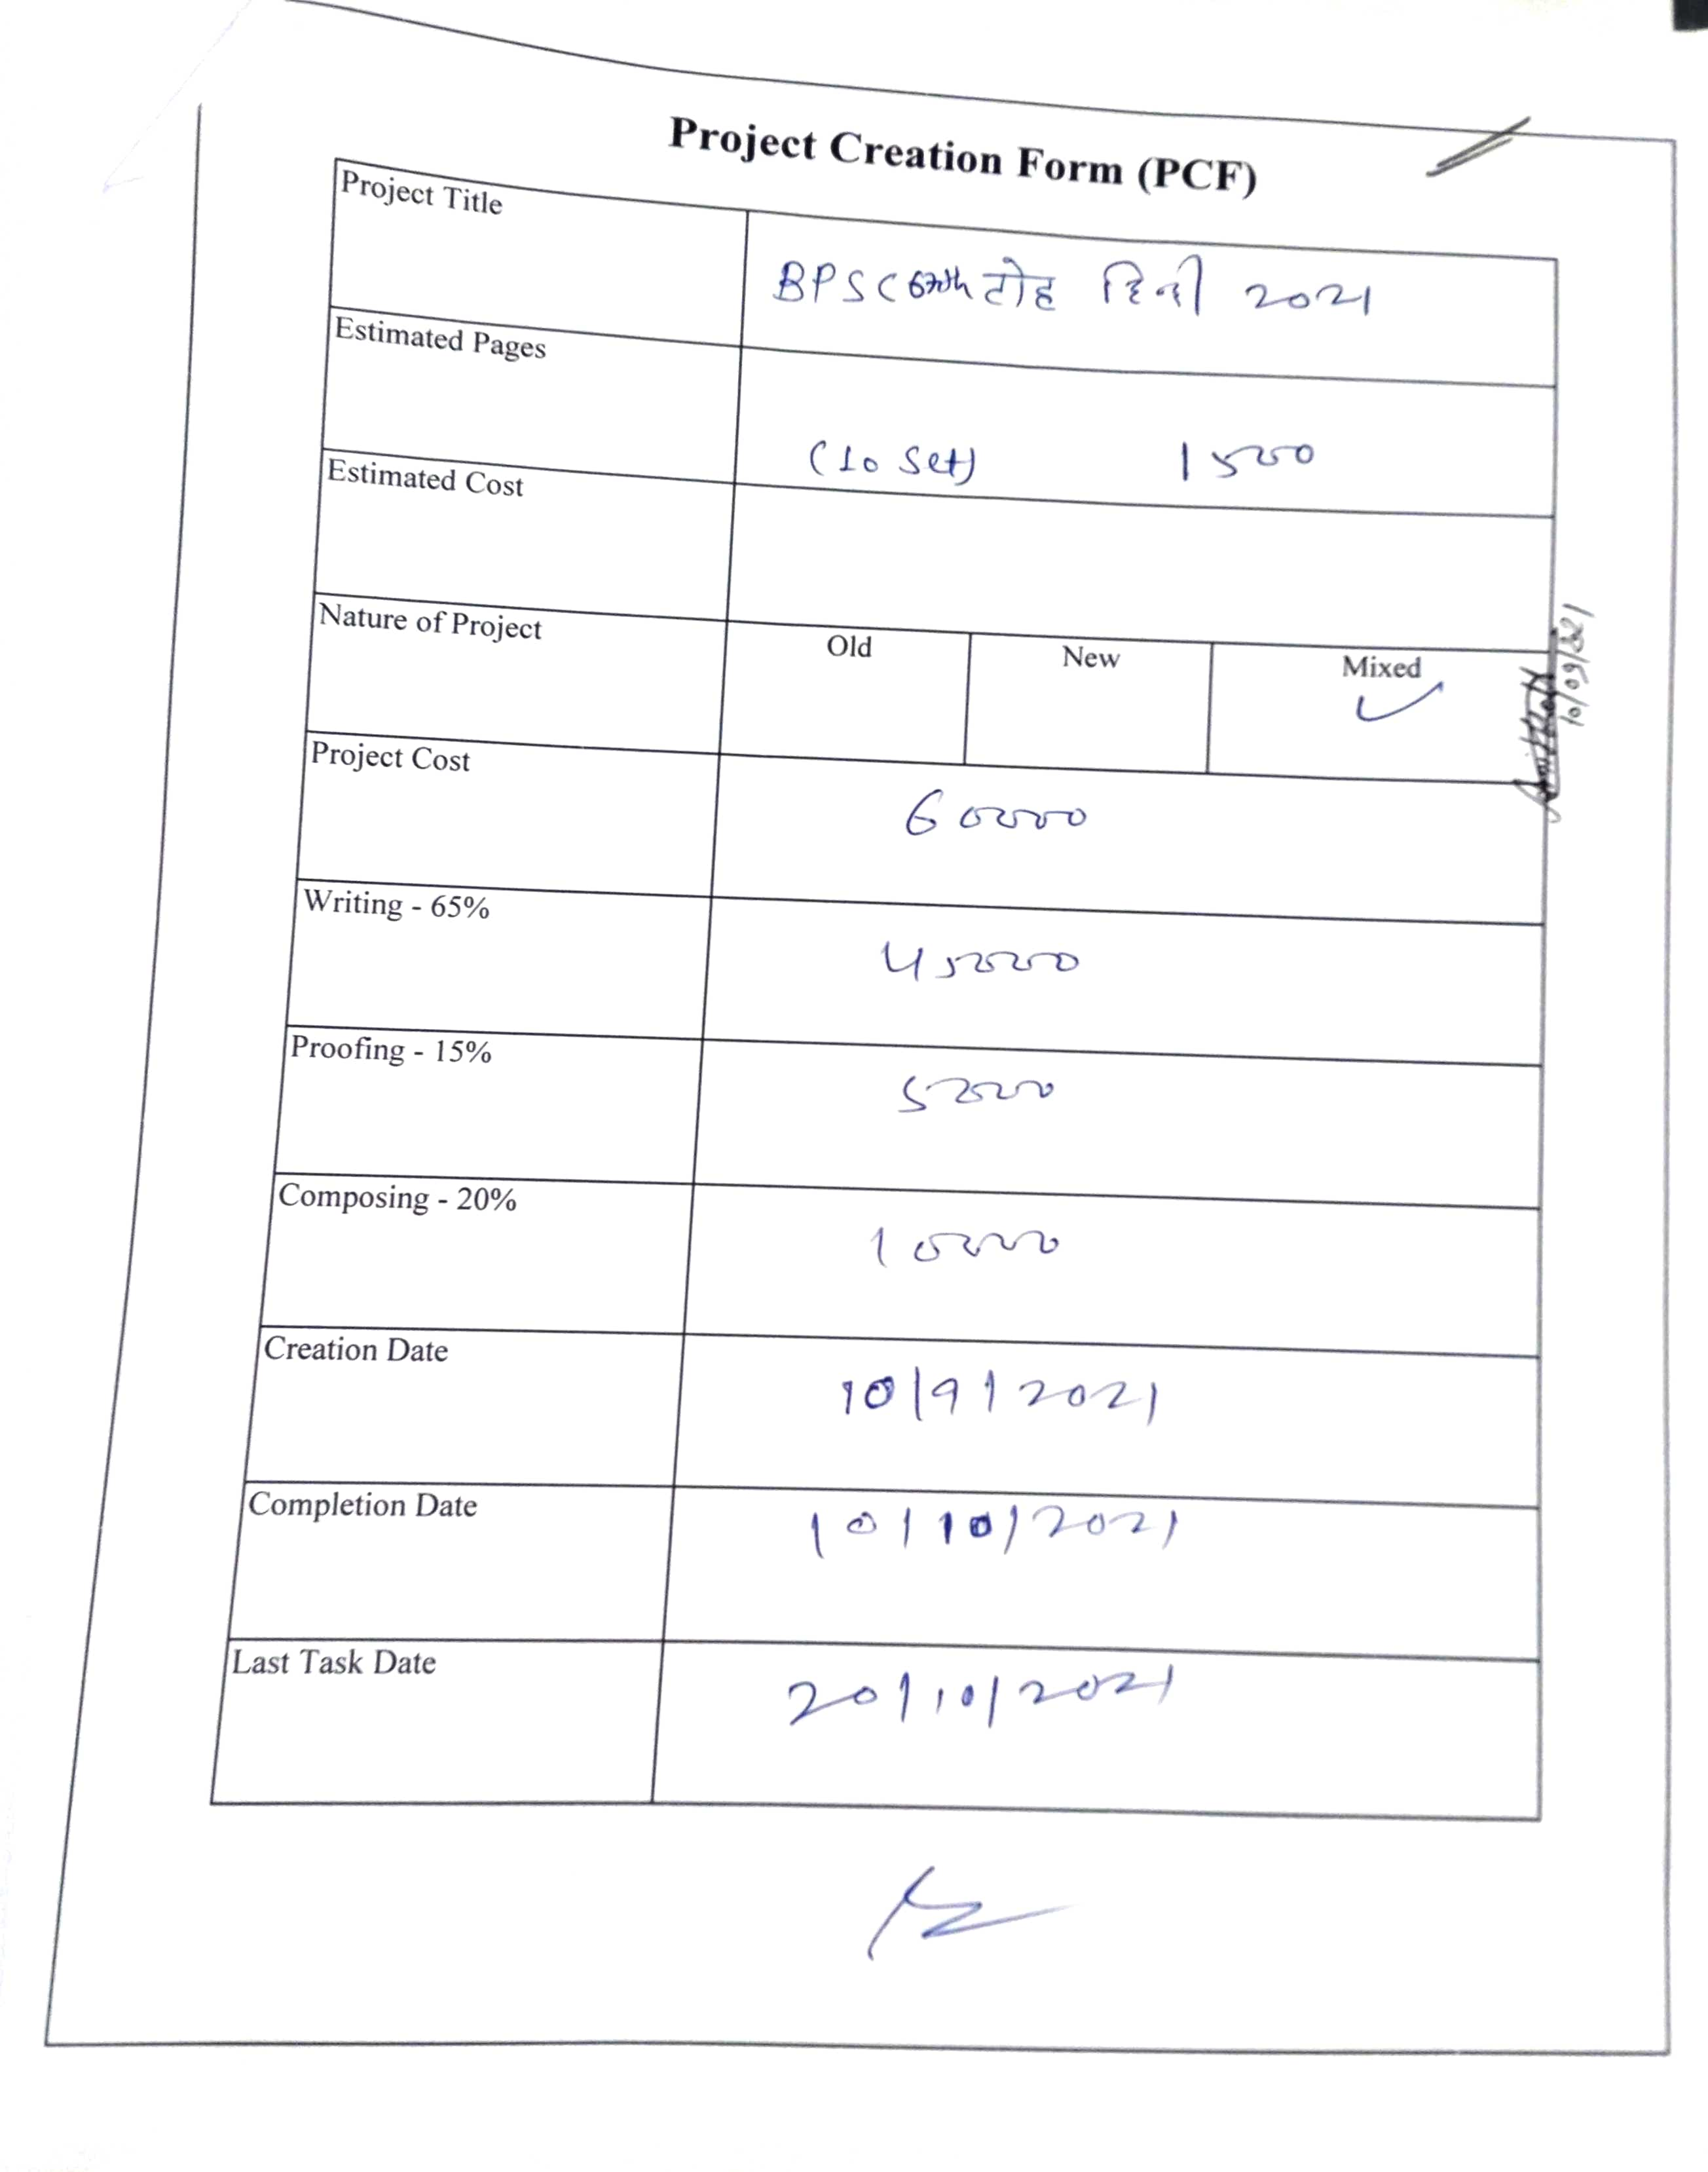 Project Creation Form (PCF)
Project Title
BPSC 67th टोह हिन्दी 2021
Estimated Pages
(10 Set) 1500
Estimated Cost
Nature of Project
Old New Mixed
Project Cost
60000
Writing - 65%
45000
Proofing - 15%
5000
Composing - 20%
10000
Creation Date
10/9/2021
Completion Date
10/10/2021
Last Task Date
20/10/2021